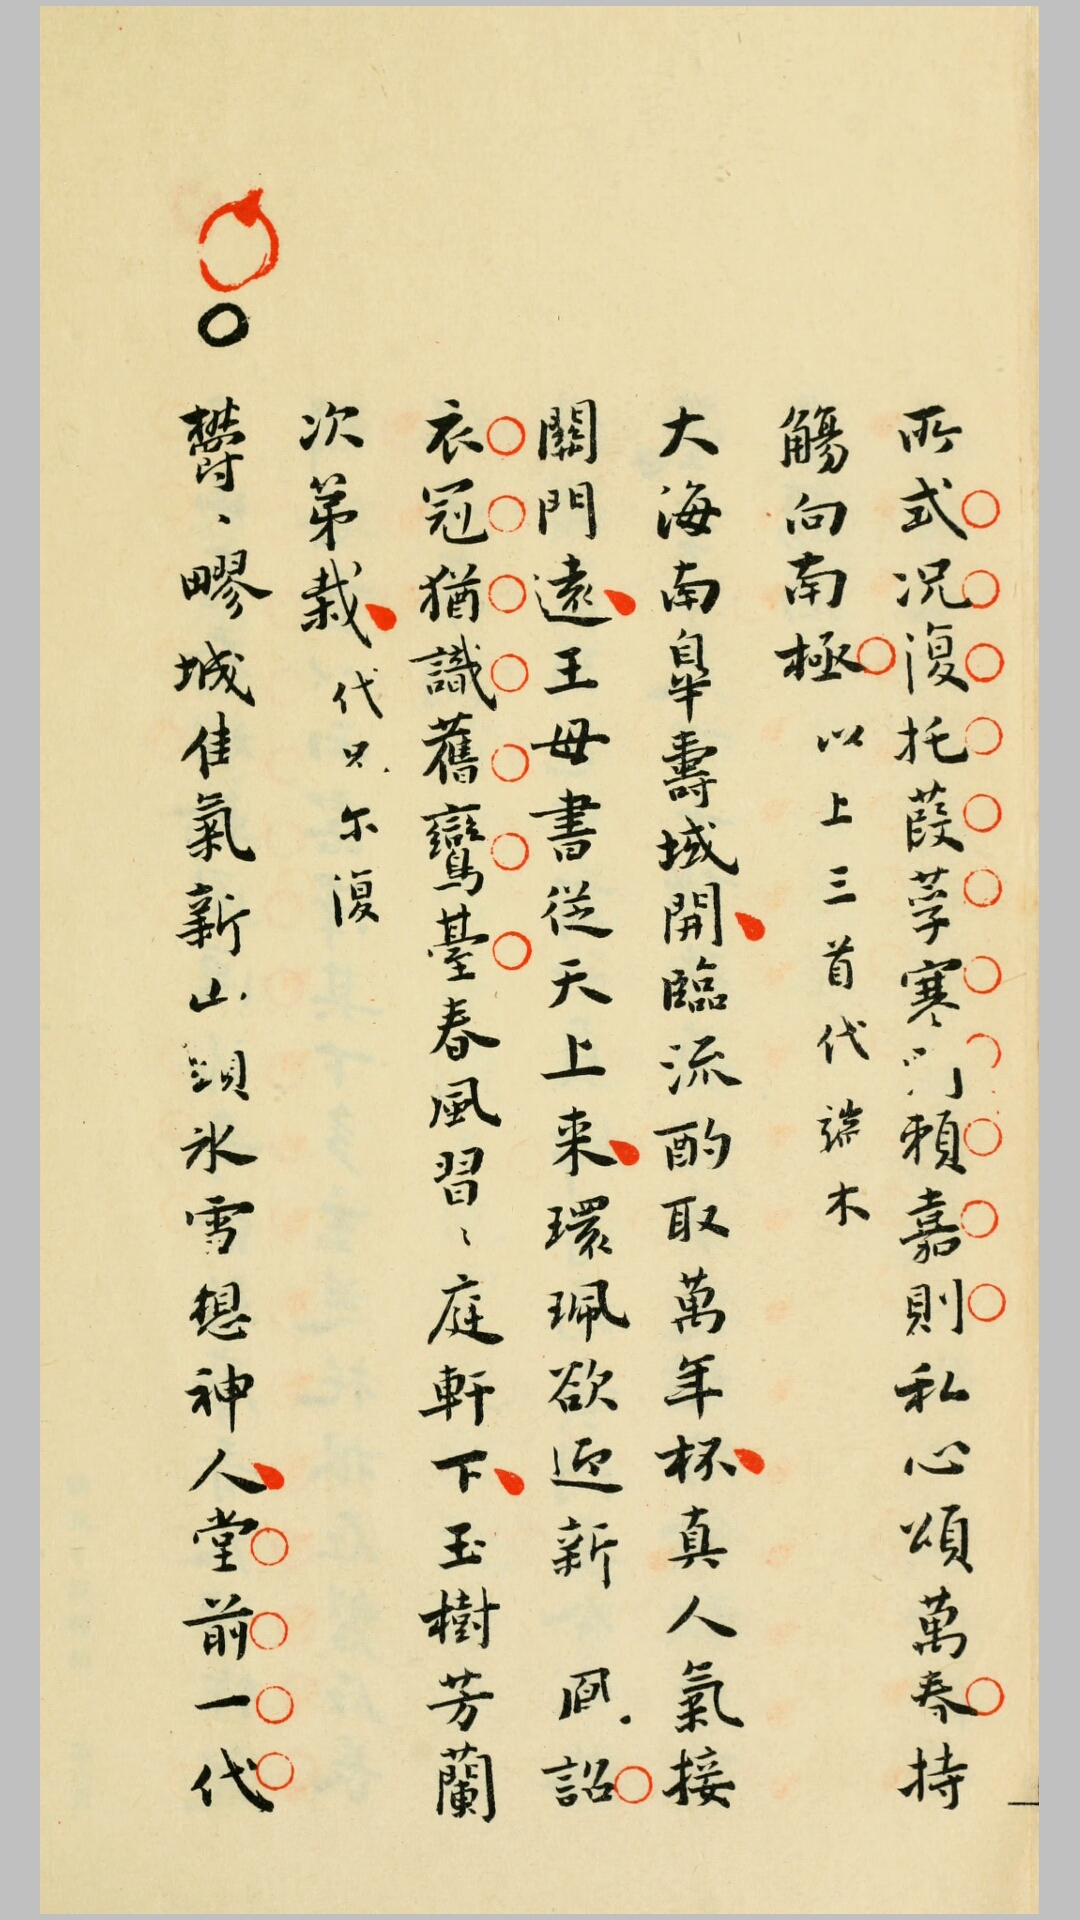 所式况復托葭莩寒門賴嘉則私心頌萬春持
觴向南極 以上三首代端木
大海南皐壽域開臨流酌取萬年杯真人氣接
關門遠王母書從天上来環珮欲迎新 回詔
衣冠猶識舊鸞臺春風習〻庭軒下玉樹芳蘭
次第栽 代只尔復
欝〻疁城佳氣新山頭氷雪想神人堂前一代